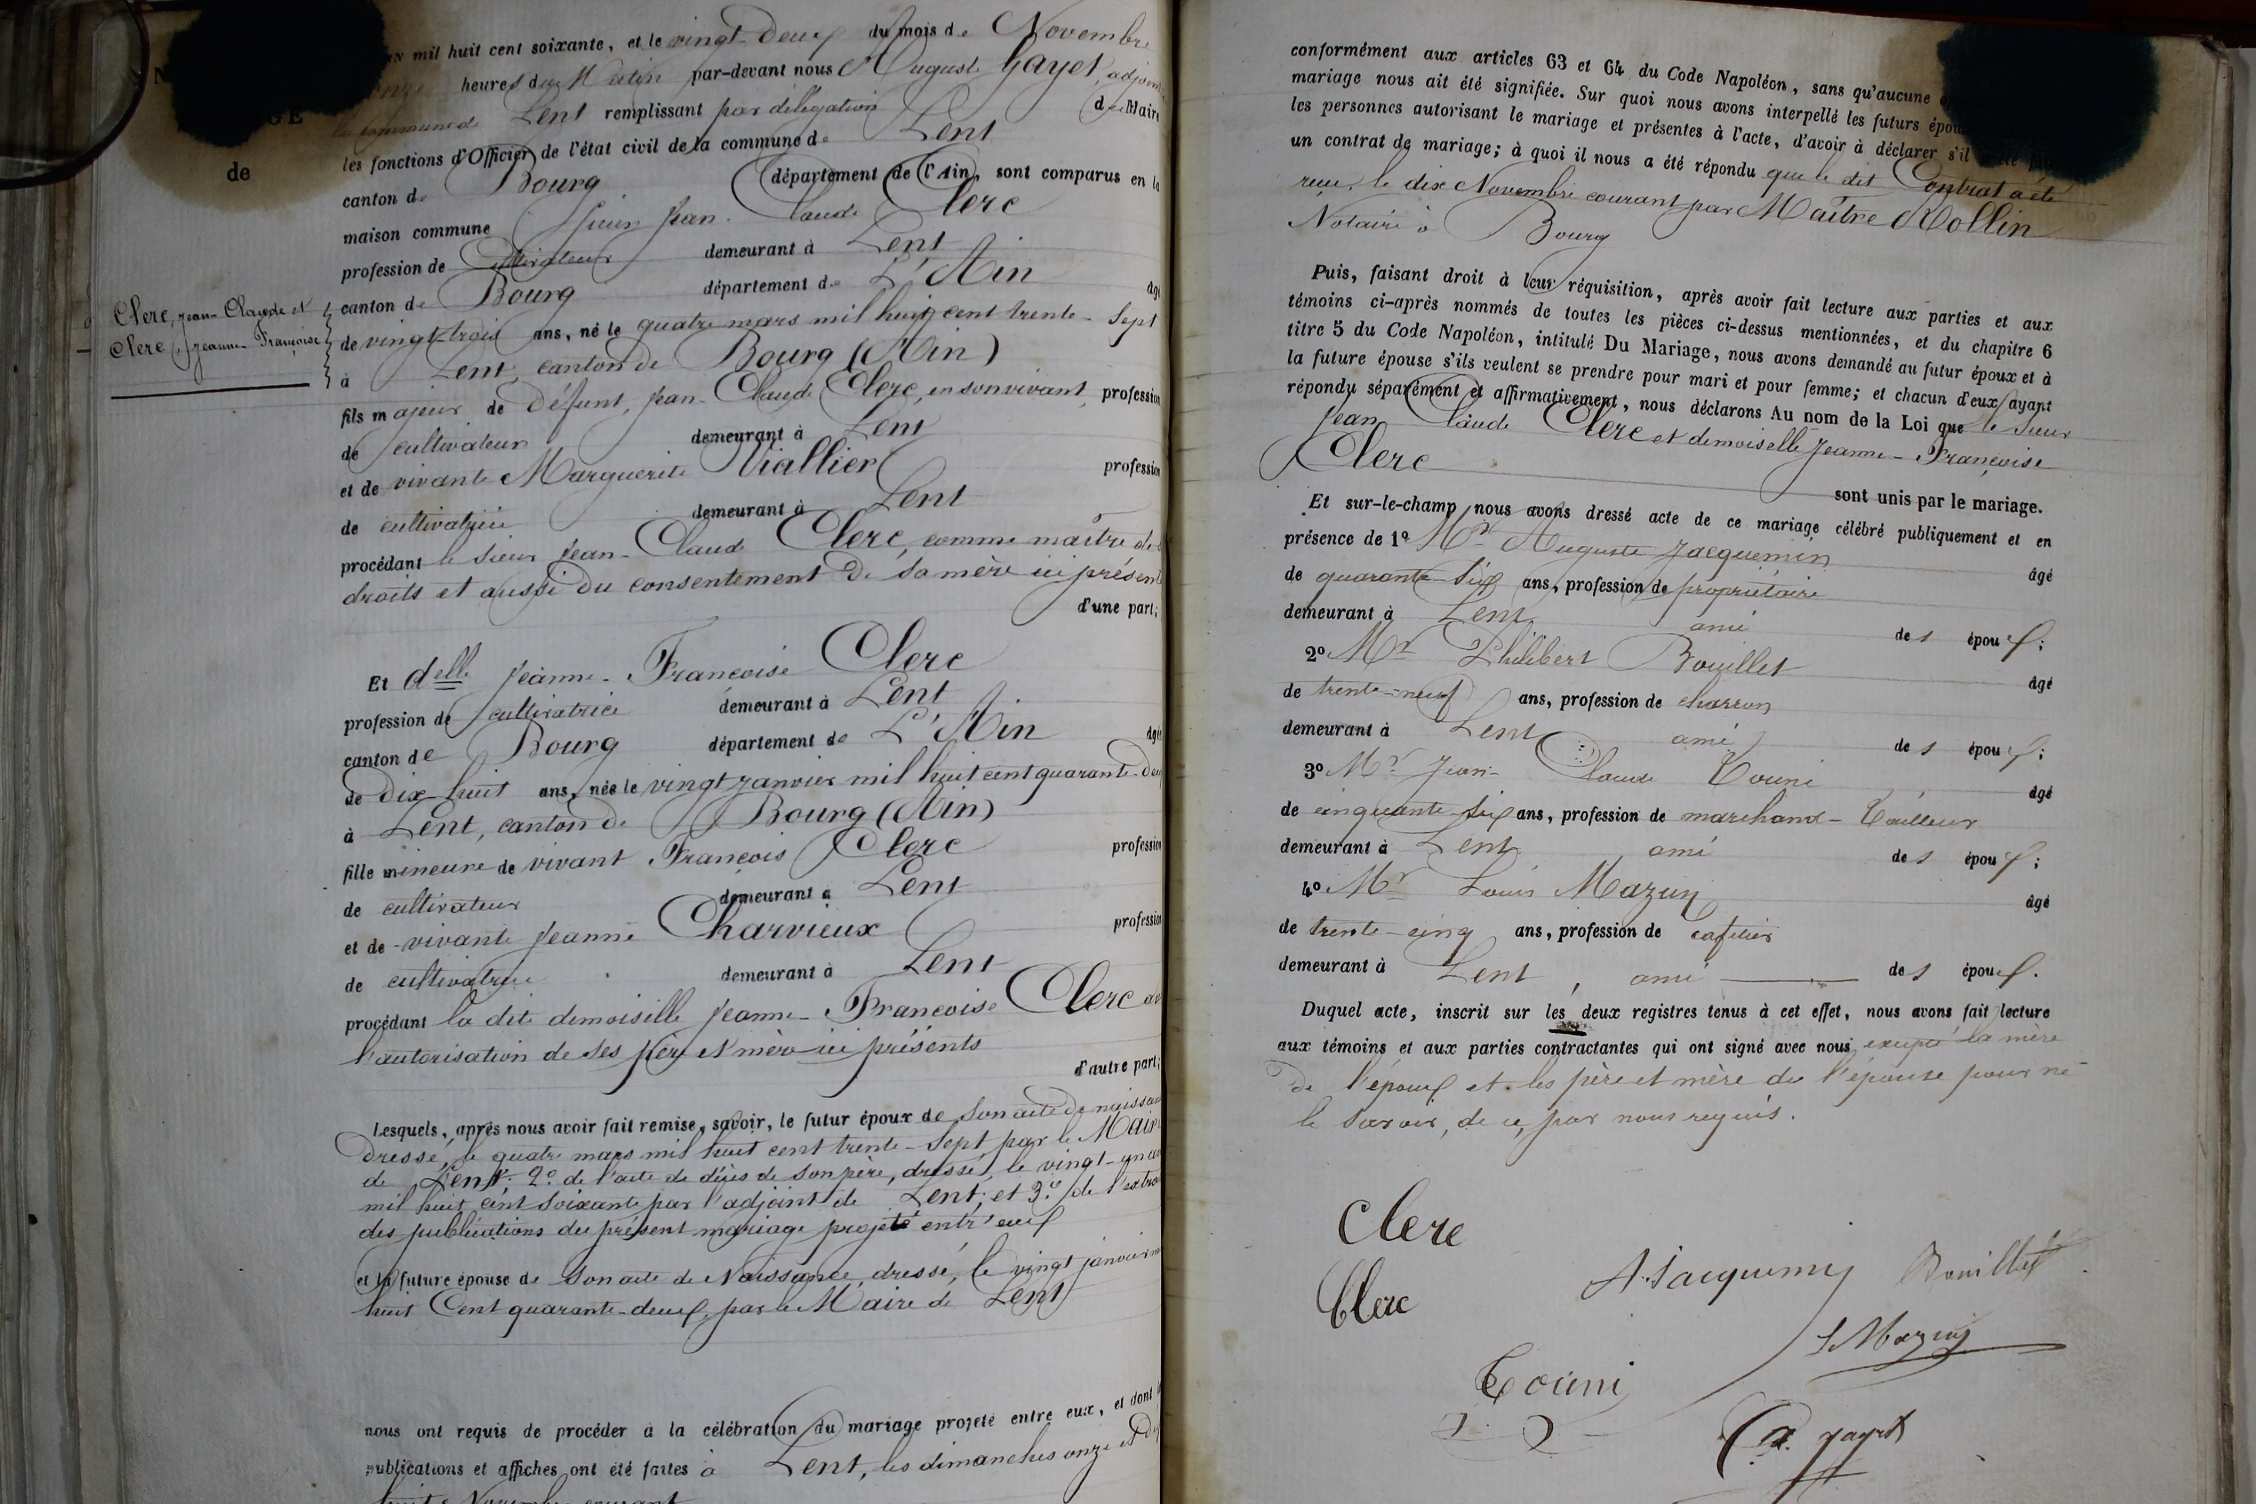 mil huit cent soixante, et le vingt-deux du mois de Novembre
heures du Matin par-devant nous Auguste Gayet, adjoint
la commune de Lent remplissant par délégation de Maire
les fonctions d'Officier de l'état civil de la commune de Lent
canton de Bourg département de l'Ain, sont comparus en la
maison commune Sieur Jean-Claude Clerc
profession de Cultivateur demeurant à Lent
canton de Bourg département de L'Ain âgé
de vingt-trois ans, né le quatre mars mil huit cent trente-sept
à Lent, canton de Bourg (Ain)
fils majeur de défunt, Jean-Claude Clerc, en son vivant, profession
de cultivateur demeurant à Lent
et de vivante Marguerite Viallier profession
de cultivatrice demeurant à Lent
procédant le sieur Jean-Claude Clerc, comme maître de
droits et aussi du consentement de sa mère ici présent
d'une part;
Et delle Jeanne-Françoise Clerc
profession de cultivatrice demeurant à Lent
canton de Bourg département de L'Ain âgée
de dix-huit ans, née le vingt janvier mil huit cent quarante-deux
à Lent, canton de Bourg (Ain)
fille mineure de vivant François Clerc profession
de cultivateur demeurant à Lent
et de vivante Jeanne Charvieux profession
de cultivatrice demeurant à Lent
procédant la dite demoiselle Jeanne-Françoise Clerc
l'autorisation de ses père et mère ici présents
d'autre part;
Lesquels, après nous avoir fait remise, savoir, le futur époux de son acte de naissance
dressé, le quatre mars mil huit cent trente-sept, par le Maire
de Lent; 2º de l'acte de décès de son père, dressé, le vingt-un
mil huit cent soixante par l'adjoint de Lent; et 3º de l'extrait
des publications du présent mariage projeté entr'eux
et la future épouse de son acte de Naissance, dressé, le vingt janvier
huit Cent quarante-deux, par le Maire de Lent
nous ont requis de procéder à la célébration du mariage projeté entre eux, et dont
publications et affiches ont été faites à Lent, les dimanches onze et dix
huit Novembre courant
de
Clerc, Jean-Claude et
Clerc, Jeanne-Françoise
conformément aux articles 63 et 64 du Code Napoléon, sans qu'aucune
mariage nous ait été signifiée. Sur quoi nous avons interpellé les futurs époux
les personnes autorisant le mariage et présentes à l'acte, d'avoir à déclarer s'il
un contrat de mariage; à quoi il nous a été répondu que le dit Contrat a été
reçu, le dix Novembre courant par Maître Rollin
Notaire à Bourg
Puis, faisant droit à leur réquisition, après avoir fait lecture aux parties et aux
témoins ci-après nommés de toutes les pièces ci-dessus mentionnées, et du chapitre 6
titre 5 du Code Napoléon, intitulé Du Mariage, nous avons demandé au futur époux et à
la future épouse s'ils veulent se prendre pour mari et pour femme; et chacun d'eux ayant
répondu séparément et affirmativement, nous déclarons Au nom de la Loi que le Sieur
Jean Claude Clerc et demoiselle Jeanne-Françoise
Clerc
sont unis par le mariage.
Et sur-le-champ nous avons dressé acte de ce mariage célébré publiquement et en
présence de 1º Mr Auguste Jacquemin âgé
de quarante-six ans, profession de propriétaire
demeurant à Lent ami des époux;
2º Mr Philibert Bouillet âgé
de trente-neuf ans, profession de charron
demeurant à Lent ami des époux;
3º Mr Jean-Claude Touni âgé
de cinquante-six ans, profession de marchand-Tailleur
demeurant à Lent ami des époux;
4º Mr Louis Mazuy âgé
de trente-cinq ans, profession de cafetier
demeurant à Lent, ami des époux.
Duquel acte, inscrit sur les deux registres tenus à cet effet, nous avons fait lecture
aux témoins et aux parties contractantes qui ont signé avec nous, excepté la mère
de l'époux et les père et mère de l'épouse pour ne
le savoir, de ce, par nous requis.
Clerc
A. Jacquemin Bouillet
Clerc
L Mazuy
Touni
A. gayet